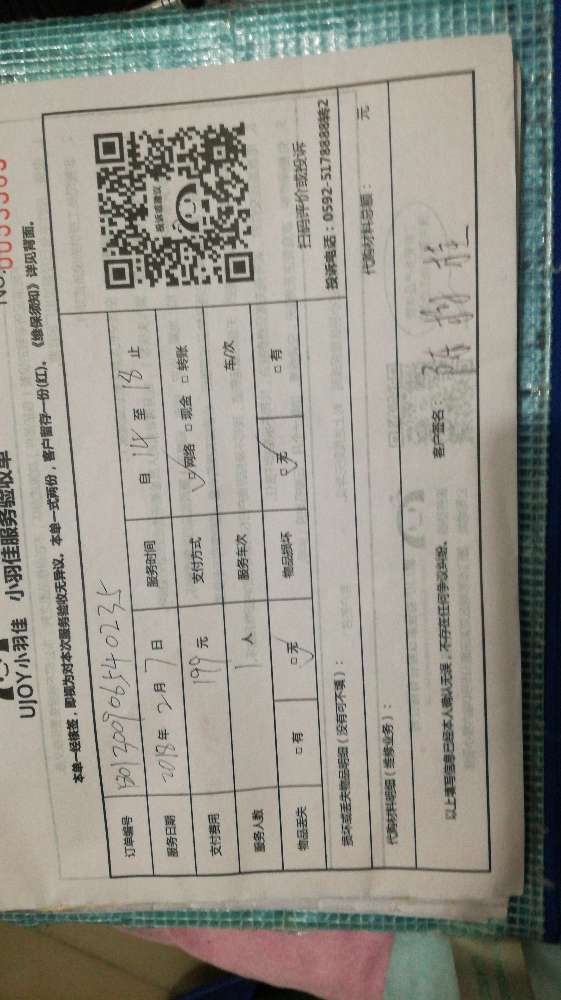 UJOY小羽佳 小羽佳服务验收单
本单一经核签，即视为对本次服务验收无异议。本单一式两份，客户暂存一份(红)。《维保须知》详见背面。
订单编号
服务日期 2018年 2月 7日 服务时间 自 14 至 18 止
支付费用 199元 支付方式 网络 现金 转账
服务人数 1人 服务车次 车/次
物品丢失 有 无 物品损坏 无 有
投诉或建议
扫码评价或投诉
损坏或丢失物品明细（没有可不填）： 投诉电话：0592-5178888转2
代购材料明细（维修业务）： 代购材料总额： 元
以上填写信息已经本人确认无误，不存在任何争议纠纷。 客户签名：